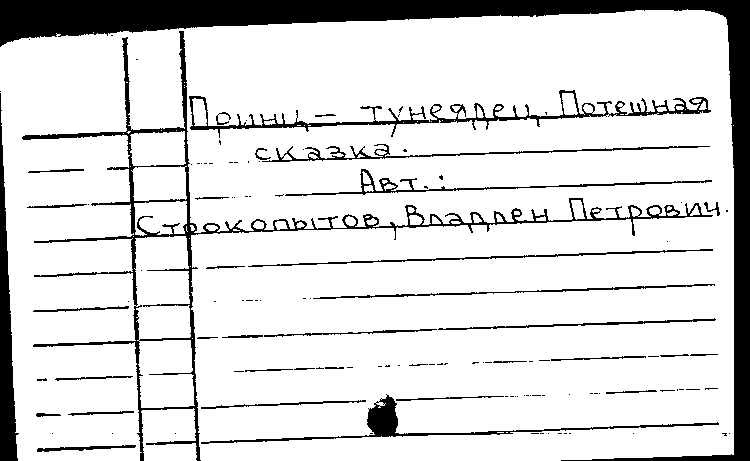 Принц – тунеядец. Потешная
сказка.
Авт.:
Строкопытов, Владлен Петрович.